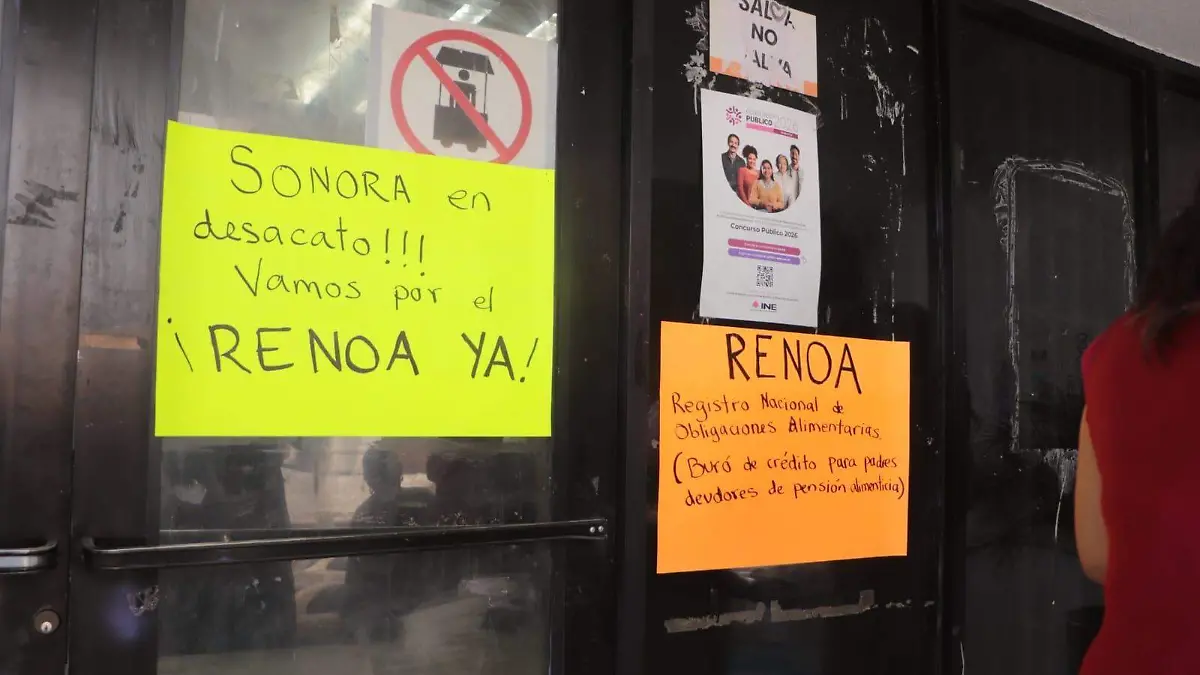 SONORA en
desacato!!!
Vamos por el
¡RENOA YA!
NO
PÚBLICO 2026
Concurso Público 2026
INE
RENOA
Registro Nacional de
Obligaciones Alimentarias.
(Buró de crédito para padres
deudores de pensión alimenticia)